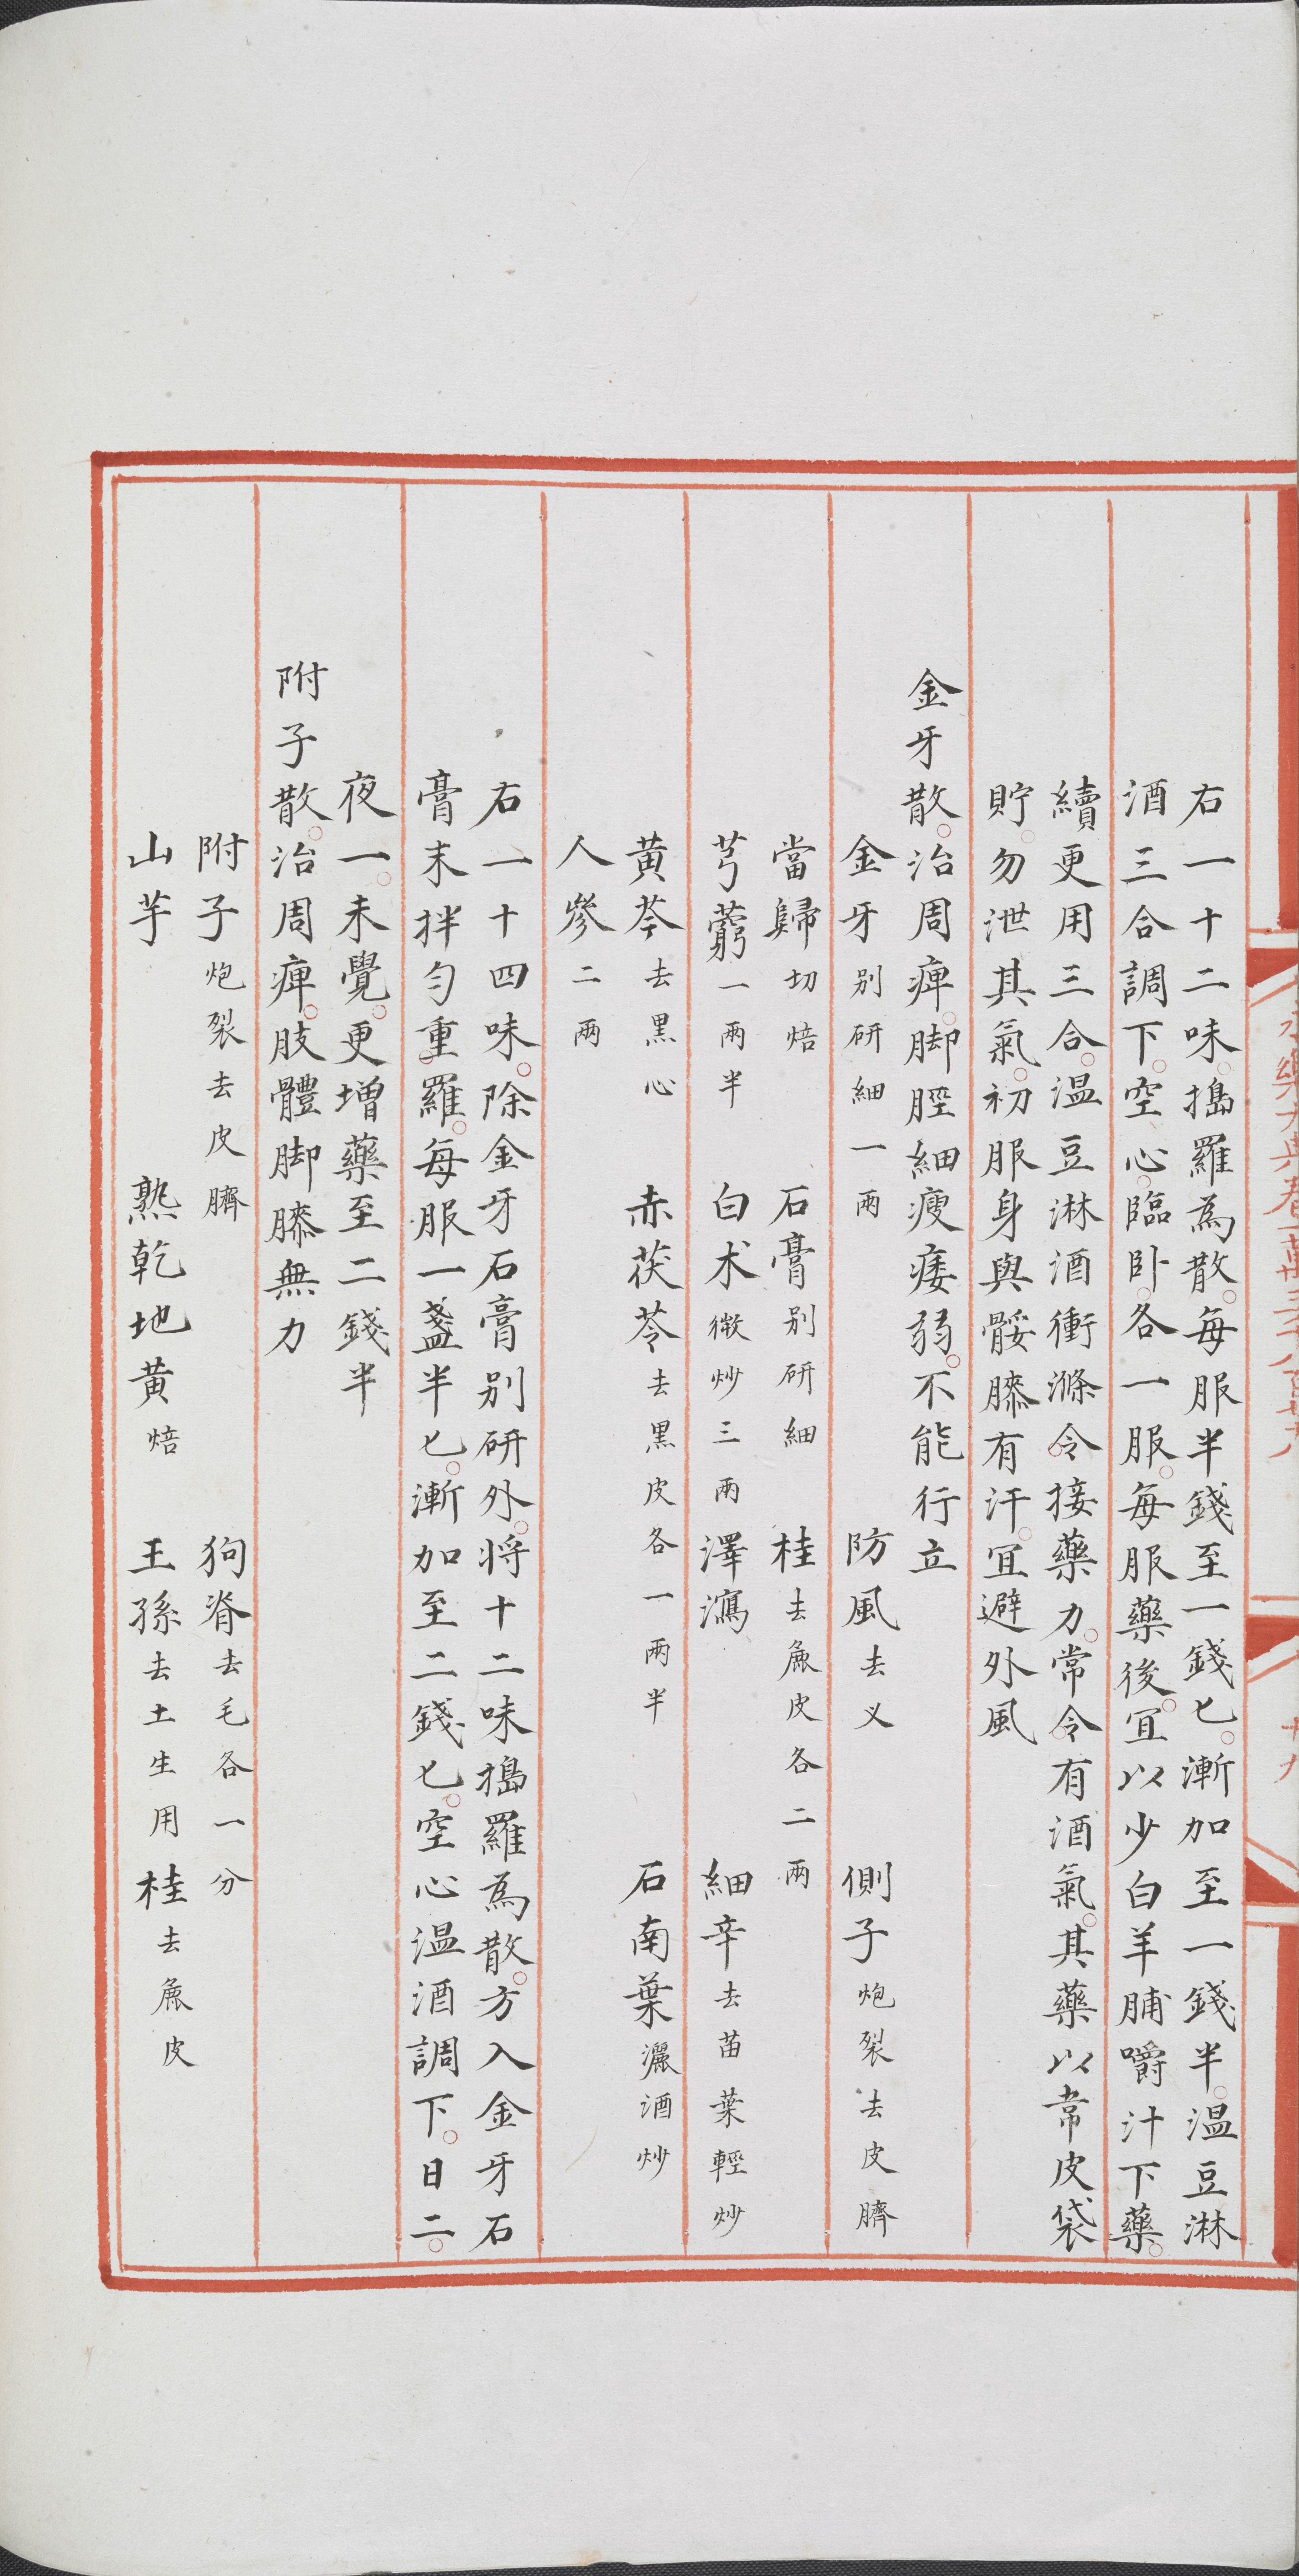 右一十二味搗羅為散每服半錢至一錢匕漸加至一錢半温豆淋
酒三合調下空心臨卧各一服每服藥後宜以少白羊脯嚼汁下藥
續更用三合温豆淋酒衝滌令接藥力常令有酒氣其藥以韋皮袋
貯勿泄其氣初服身與骽膝有汗宜避外風
金牙散治周痺脚脛細瘦痿弱不能行立
金牙别研細一兩 防風去义 側子炮裂去皮臍
當歸切焙 石膏别研細 桂去麁皮各二兩
芎藭一兩半 白术微炒三兩 澤瀉 細辛去苗葉輕炒
黄芩去黑心 赤茯苓去黑皮各一兩半 石南葉灑酒炒
人參二兩
右一十四味除金牙石膏别研外将十二味搗羅為散方入金牙石
膏末拌勻重羅每服一盞半匕漸加至二錢匕空心温酒調下日二
夜一未覺更增藥至二錢半
附子散治周痺肢體脚膝無力
附子炮裂去皮臍 狗脊去毛各一分
山芋 熟乾地黄焙 王孫去土生用 桂去麁皮